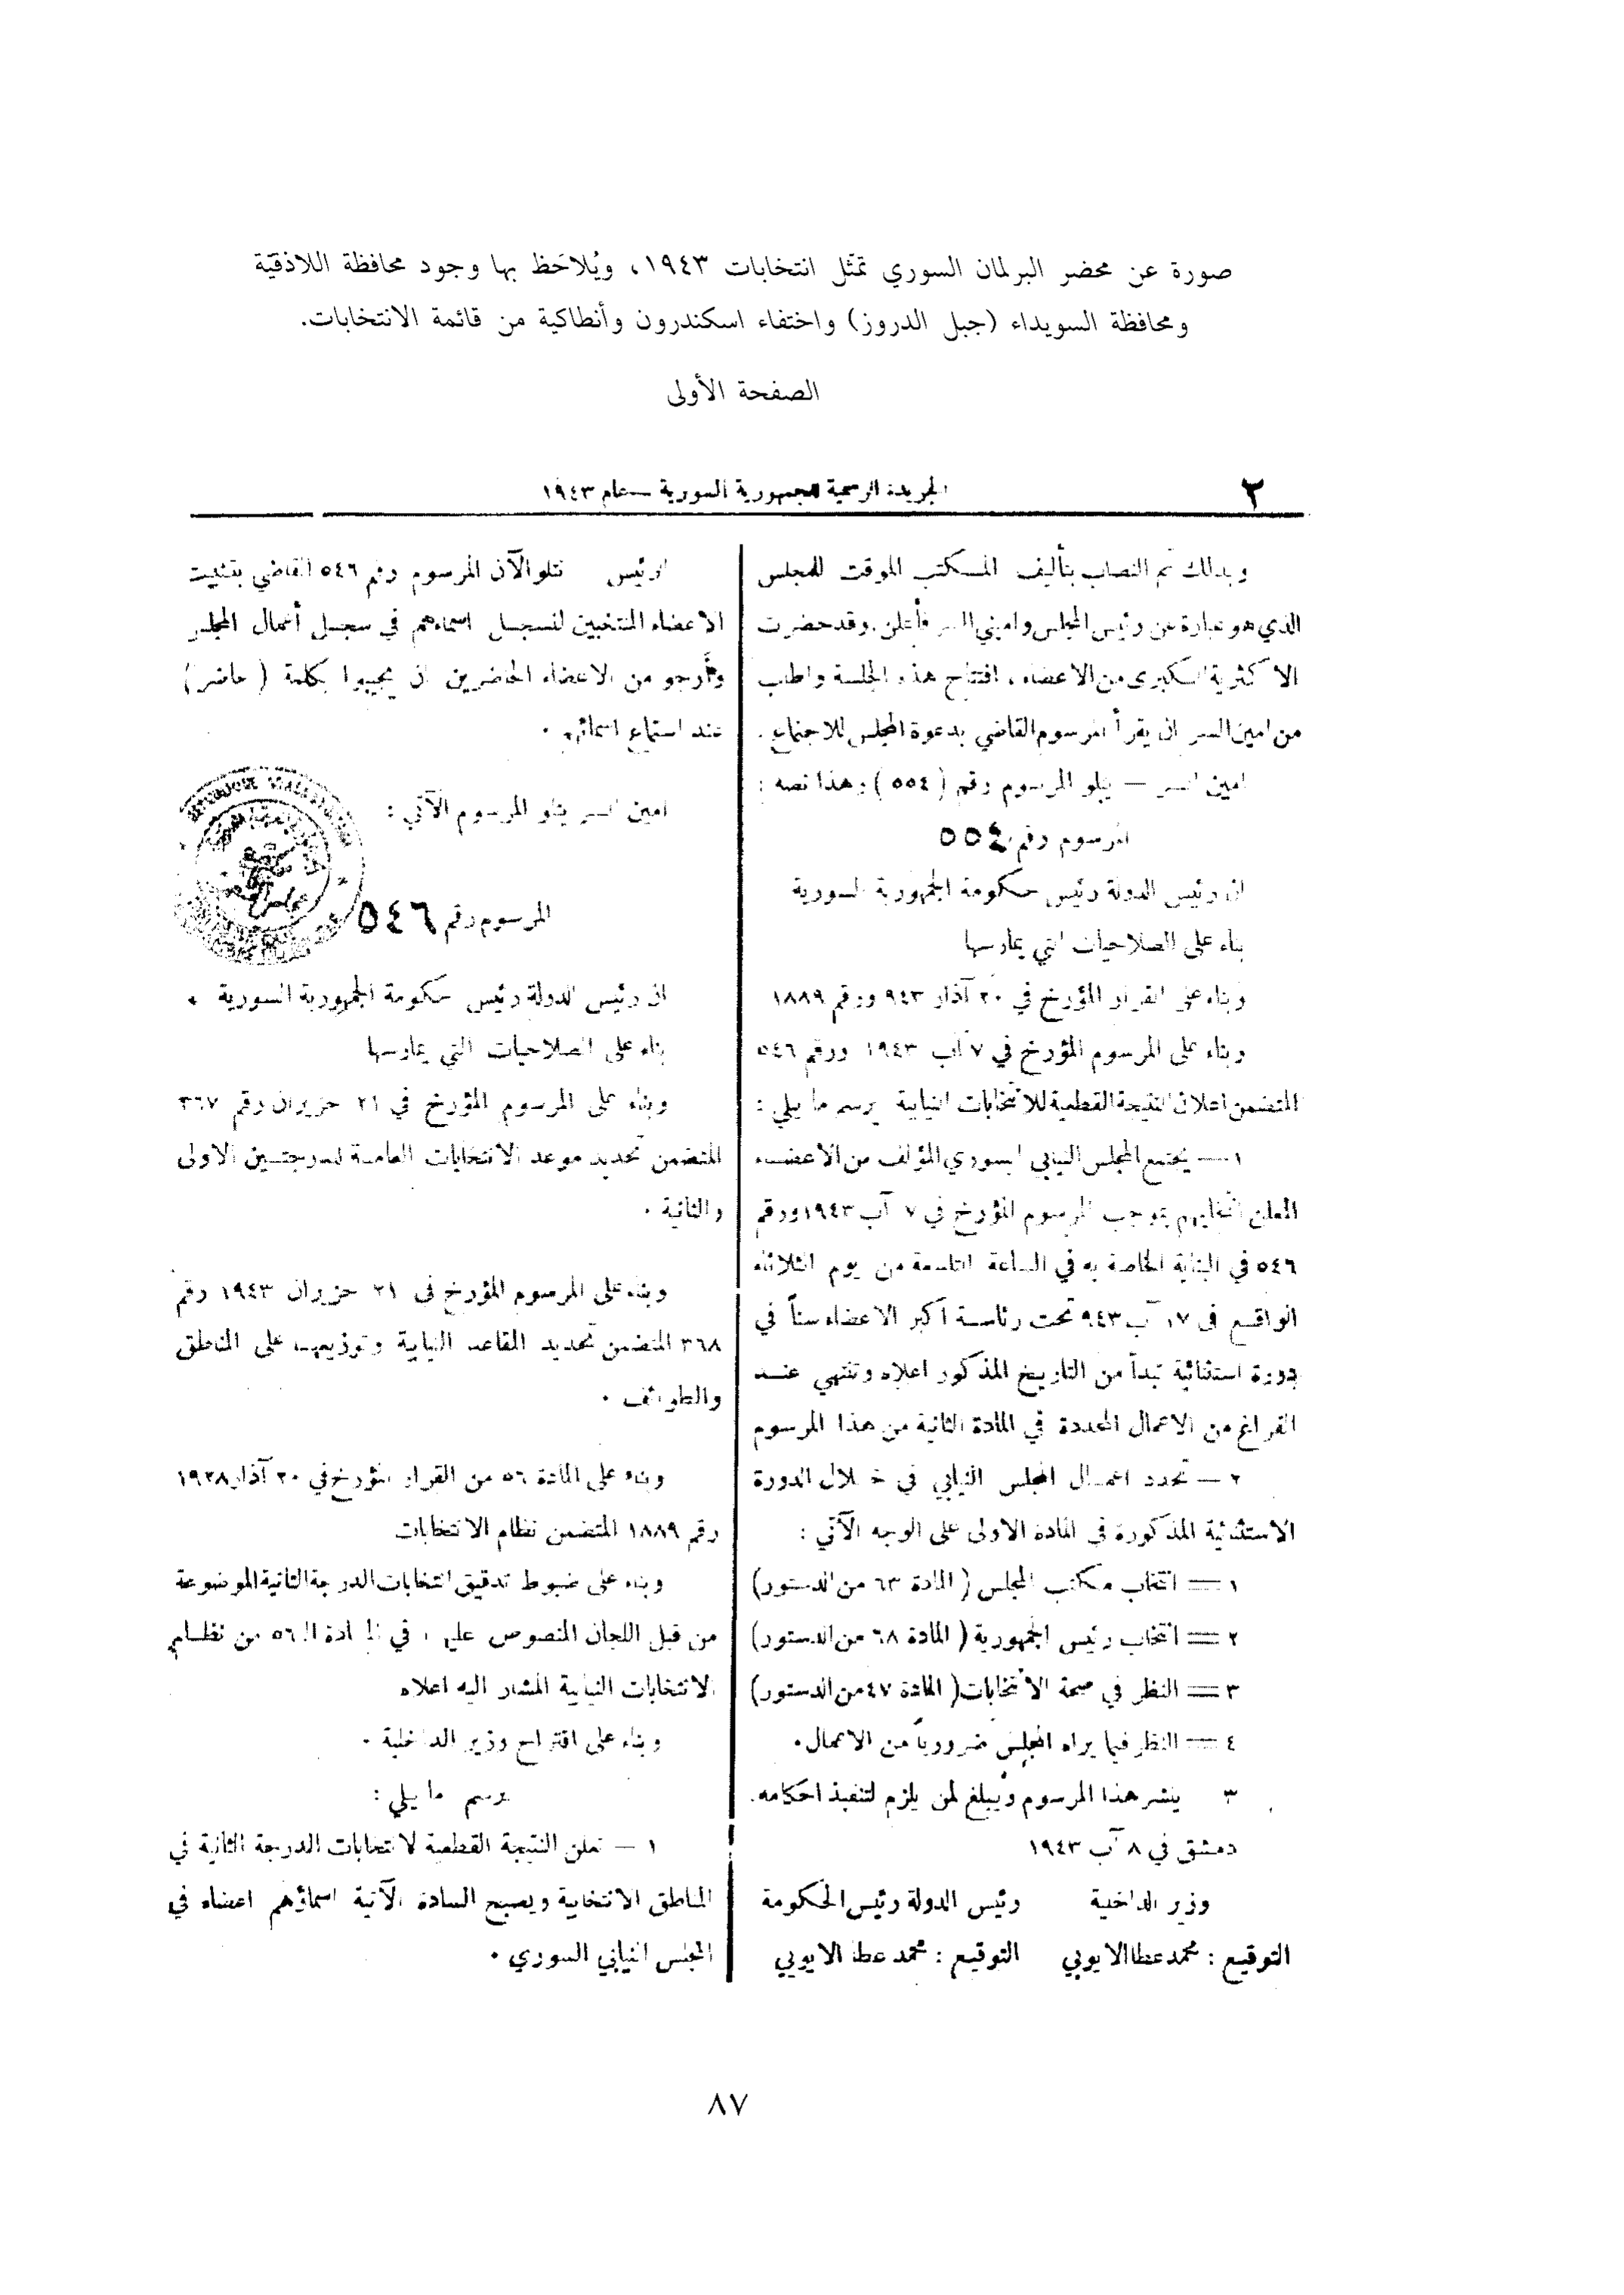 صورة عن محضر البرلمان السوري تمثّل انتخابات ١٩٤٣، ويُلاحَظ بها وجود محافظة اللاذقيّة
ومحافظة السويداء (جبل الدروز) واختفاء اسكندرون وأنطاكية من قائمة الانتخابات.
الصفحة الأولى
٢
الجريدة الرسمية للجمهورية السورية — عام ١٩٤٣
وبذلك تم النصاب بتأليف المكتب الموقت للمجلس
الذي هو عبارة عن رئيس المجلس واميني السر فأعلن. وقد حضرت
الاكثرية الكبرى من الاعضاء، افتتاح هذه الجلسة واطلب
من امين السر ان يقرأ المرسوم القاضي بدعوة المجلس للاجتماع.
امين السر — يتلو المرسوم رقم (٥٥٤) وهذا نصه :
المرسوم رقم ٥٥٤
ان رئيس الدولة رئيس حكومة الجمهورية السورية
بناء على الصلاحيات التي يمارسها
وبناء على القرار المؤرخ في ٢٠ آذار ٩٤٣ ورقم ١٨٨٩
وبناء على المرسوم المؤرخ في ٧ آب ١٩٤٣ ورقم ٥٤٦
المتضمن اعلان النتيجة القطعية للانتخابات النيابية يرسم ما يلي :
١ — يجتمع المجلس النيابي السوري المؤلف من الاعضاء
المعلن انتخابهم بموجب المرسوم المؤرخ في ٧ آب ١٩٤٣ ورقم
٥٤٦ في البناية الخاصة به في الساعة التاسعة من يوم الثلاثاء
الواقع في ١٧ آب ٩٤٣ تحت رئاسة اكبر الاعضاء سناً في
دورة استثنائية تبدأ من التاريخ المذكور اعلاه وتنتهي عند
الفراغ من الاعمال المحددة في المادة الثانية من هذا المرسوم
٢ — تحدد اعمال المجلس النيابي في خلال الدورة
الاستثنائية المذكورة في المادة الاولى على الوجه الآتي :
١ = انتخاب مكتب المجلس (المادة ٦٣ من الدستور)
٢ = انتخاب رئيس الجمهورية (المادة ٦٨ من الدستور)
٣ = النظر في صحة الانتخابات (المادة ٤٧ من الدستور)
٤ = النظر فيما يراه المجلس ضرورياً من الاعمال.
٣ ينشر هذا المرسوم ويبلغ لمن يلزم لتنفيذ احكامه.
دمشق في ٨ آب ١٩٤٣
وزير الداخلية رئيس الدولة رئيس الحكومة
التوقيع : محمد عطا الايوبي التوقيع : محمد عطا الايوبي
الرئيس نتلو الآن المرسوم رقم ٥٤٦ القاضي بتثبيت
الاعضاء المنتخبين لنسجل اسماءهم في سجل أعمال المجلس
وأرجو من الاعضاء الحاضرين ان يجيبوا بكلمة (حاضر)
عند استماع اسمائهم .
امين السر يتلو المرسوم الآتي :
المرسوم رقم ٥٤٦
ان رئيس الدولة رئيس حكومة الجمهورية السورية .
بناء على الصلاحيات التي يمارسها
وبناء على المرسوم المؤرخ في ٢١ حزيران رقم ٣٦٧
المتضمن تحديد موعد الانتخابات العامة للدرجتين الاولى
والثانية .
وبناء على المرسوم المؤرخ في ٢١ حزيران ١٩٤٣ رقم
٣٦٨ المتضمن تحديد المقاعد النيابية وتوزيعها على المناطق
والطوائف .
وبناء على المادة ٥٦ من القرار المؤرخ في ٢٠ آذار ١٩٢٨
رقم ١٨٨٩ المتضمن نظام الانتخابات
وبناء على ضبوط تدقيق انتخابات الدرجة الثانية الموضوعة
من قبل اللجان المنصوص عليها في المادة الـ ٥٦ من نظام
الانتخابات النيابية المشار اليه اعلاه
وبناء على اقتراح وزير الداخلية .
يرسم ما يلي :
١ — تعلن النتيجة القطعية لانتخابات الدرجة الثانية في
المناطق الانتخابية ويصبح السادة الآتية اسماؤهم اعضاء في
المجلس النيابي السوري .
٨٧